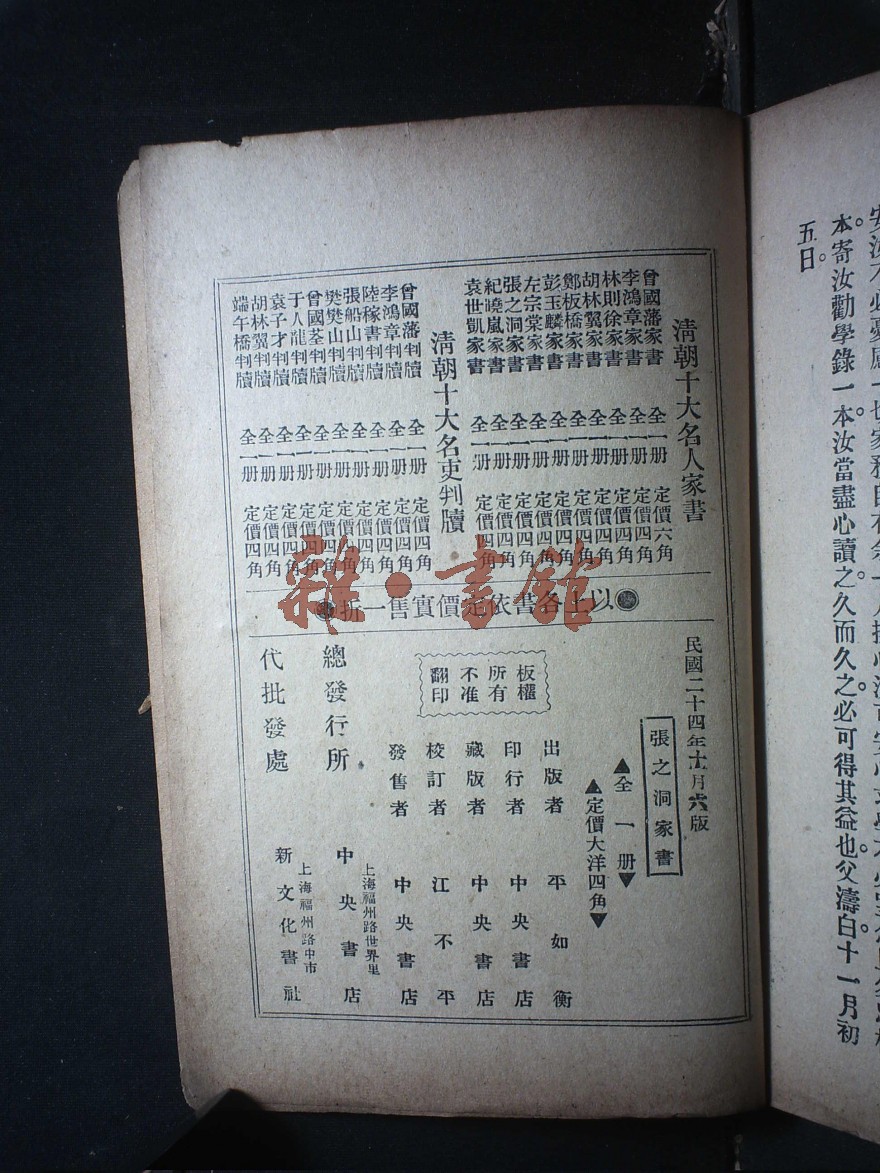 安汝不必憂慮
本。寄汝勸學錄一本。汝當盡心讀之。久而久之。必可得其益也。父濤白。十一月初
五日。
清朝十大名人家書
曾國藩家書 全一册 定價六角
李鴻章家書 全一册 定價四角
林則徐家書 全一册 定價四角
胡林翼家書 全一册 定價四角
鄭板橋家書 全一册 定價四角
彭玉麟家書 全一册 定價四角
左宗棠家書 全一册 定價四角
張之洞家書 全一册 定價四角
紀曉嵐家書 全一册 定價四角
袁世凱家書 全一册 定價四角
清朝十大名吏判牘
曾國藩判牘 全一册 定價四角
李鴻章判牘 全一册 定價四角
陸稼書判牘 全一册 定價四角
張船山判牘 全一册 定價四角
樊樊山判牘 全一册 定價四角
曾國荃判牘 全一册 定價四角
于人龍判牘 全一册 定價四角
袁子才判牘 全一册 定價四角
胡林翼判牘 全一册 定價四角
端午橋判牘 全一册 定價四角
以上各書依定價實售一折
雜·書館
民國二十四年十月六版
張之洞家書
▲全一册▼
▲定價大洋四角▼
板權
所有
不准
翻印
出版者 平如衡
印行者 中央書店
藏版者 中央書店
校訂者 江不平
發售者 中央書店
總發行所 上海福州路世界里
中央書店
代批發處 上海福州路中市
新文化書社